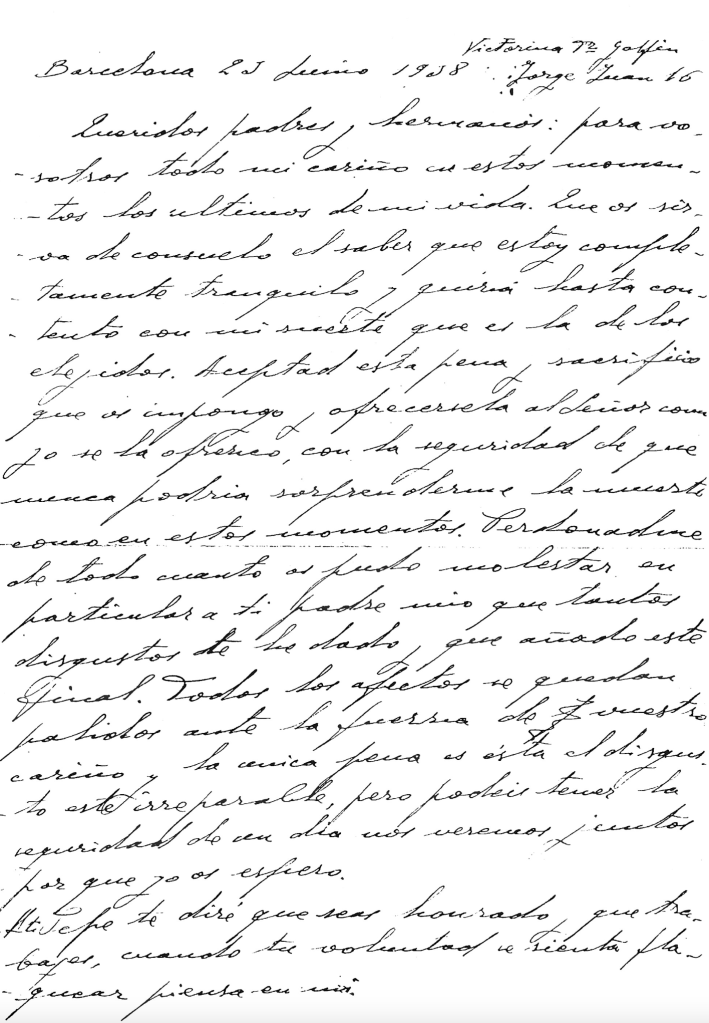 Victorina Golfin
Barcelona 23 junio 1938 Jorge Juan 16
Queridos padres y hermanos: para vo-
-sotros todo mi cariño en estos momen-
-tos los ultimos de mi vida. Que os sir-
-va de consuelo el saber que estoy comple-
-tamente tranquilo y quizá hasta con-
-tento con mi suerte que es la de los
elejidos. Aceptad esta pena y sacrificio
que os impongo y ofrecersela al Señor como
yo se la ofrezco, con la seguridad de que
nunca podria sorprenderme la muerte
como en estos momentos. Perdonadme
de todo cuanto os pude molestar en
particular a ti padre mio que tantos
disgustos te he dado y que añado este
final. Todos los afectos se quedan
palidos ante la fuerza de vuestro
cariño y la unica pena es ésta el disgus-
-to este irreparable, pero podeis tener la
seguridad de un dia nos veremos juntos
por que yo os espero.
A ti Pepe te diré que seas honrado y que tra-
bajes, cuando tu voluntad se sienta fla-
-quear piensa en mi.